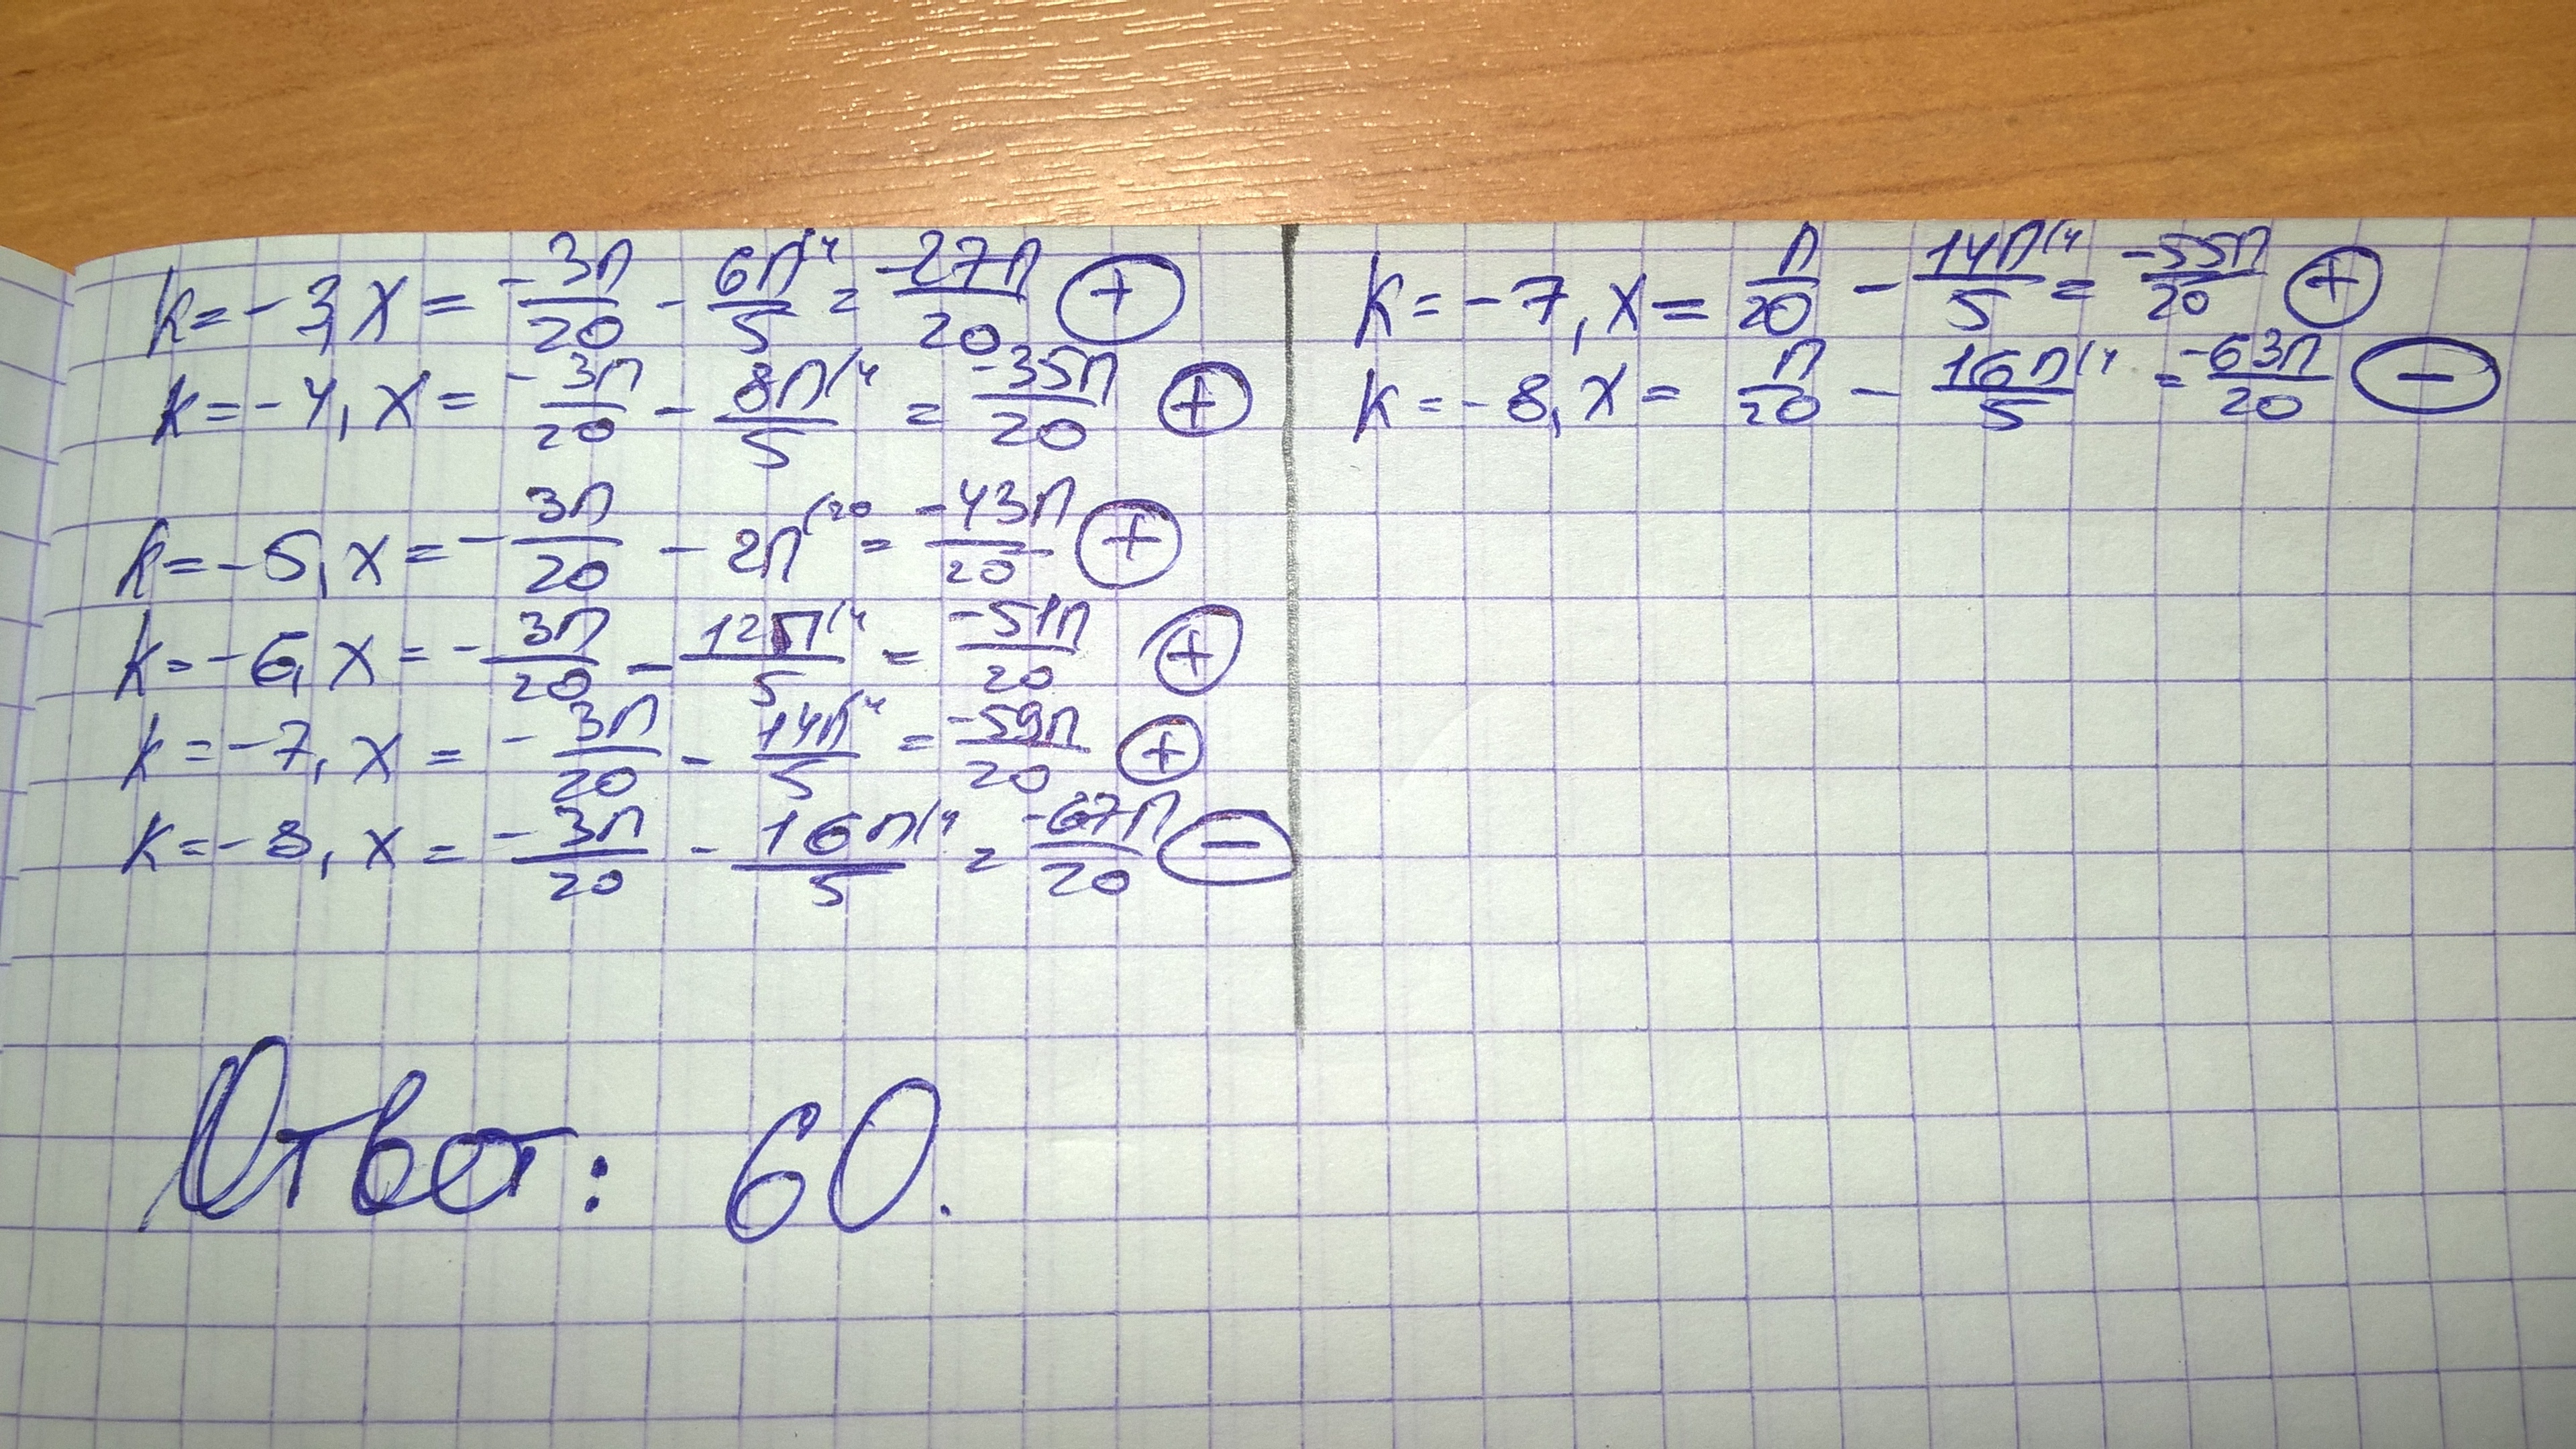 k=-3, x = -3π/20 - 6π(4/5 = -27π/20 ⊕
k=-4, x = -3π/20 - 8π(4/5 = -35π/20 ⊕
k=-5, x = -3π/20 - 2π(20 = -43π/20 ⊕
k=-6, x = -3π/20 - 12π(4/5 = -51π/20 ⊕
k=-7, x = -3π/20 - 14π(4/5 = -59π/20 ⊕
k=-8, x = -3π/20 - 16π(4/5 = -67π/20 ⊖
k=-7, x = π/20 - 14π(4/5 = -55π/20 ⊕
k=-8, x = π/20 - 16π(4/5 = -63π/20 ⊖
Ответ: 60.